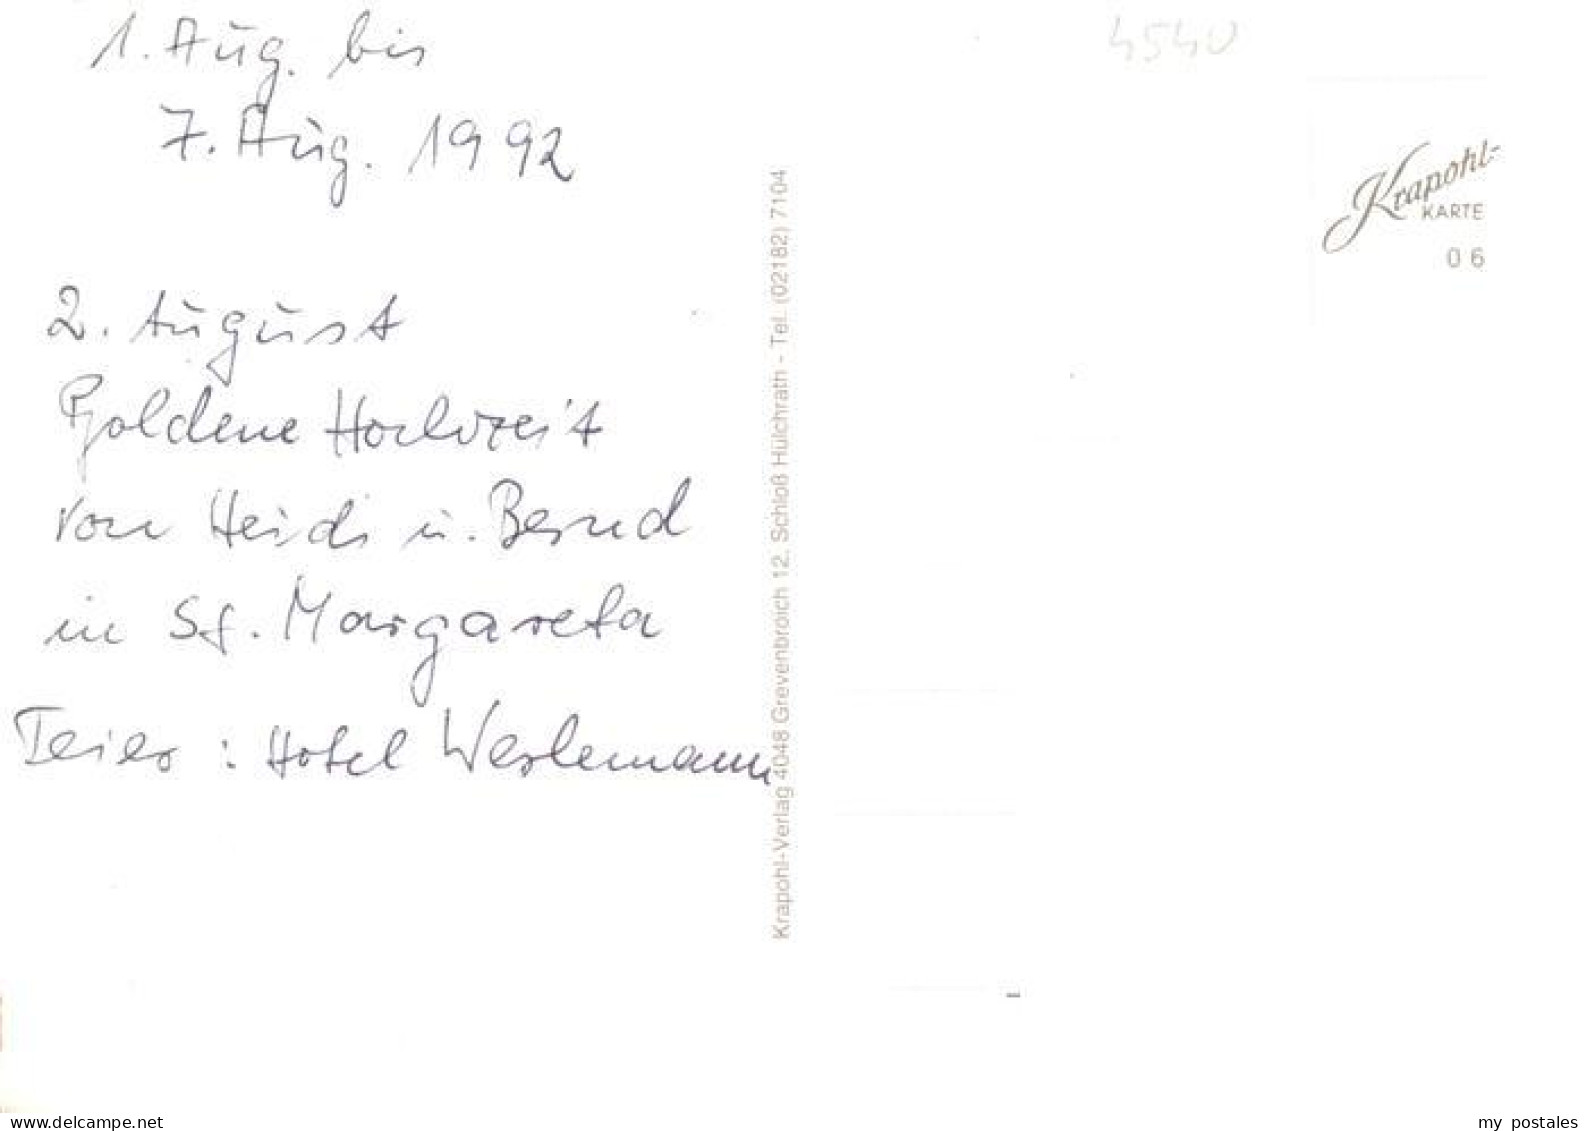 1. Aug. bis
7. Aug. 1992
2. August
Goldene Hochzeit
von Heidi u. Bernd
in St. Margareta
Feier: Hotel
4540
Krapohl-
KARTE
06
Krapohl-Verlag 4048 Grevenbroich 12, Schloß Hülchrath - Tel. (02182) 7104
www.delcampe.net
my postales